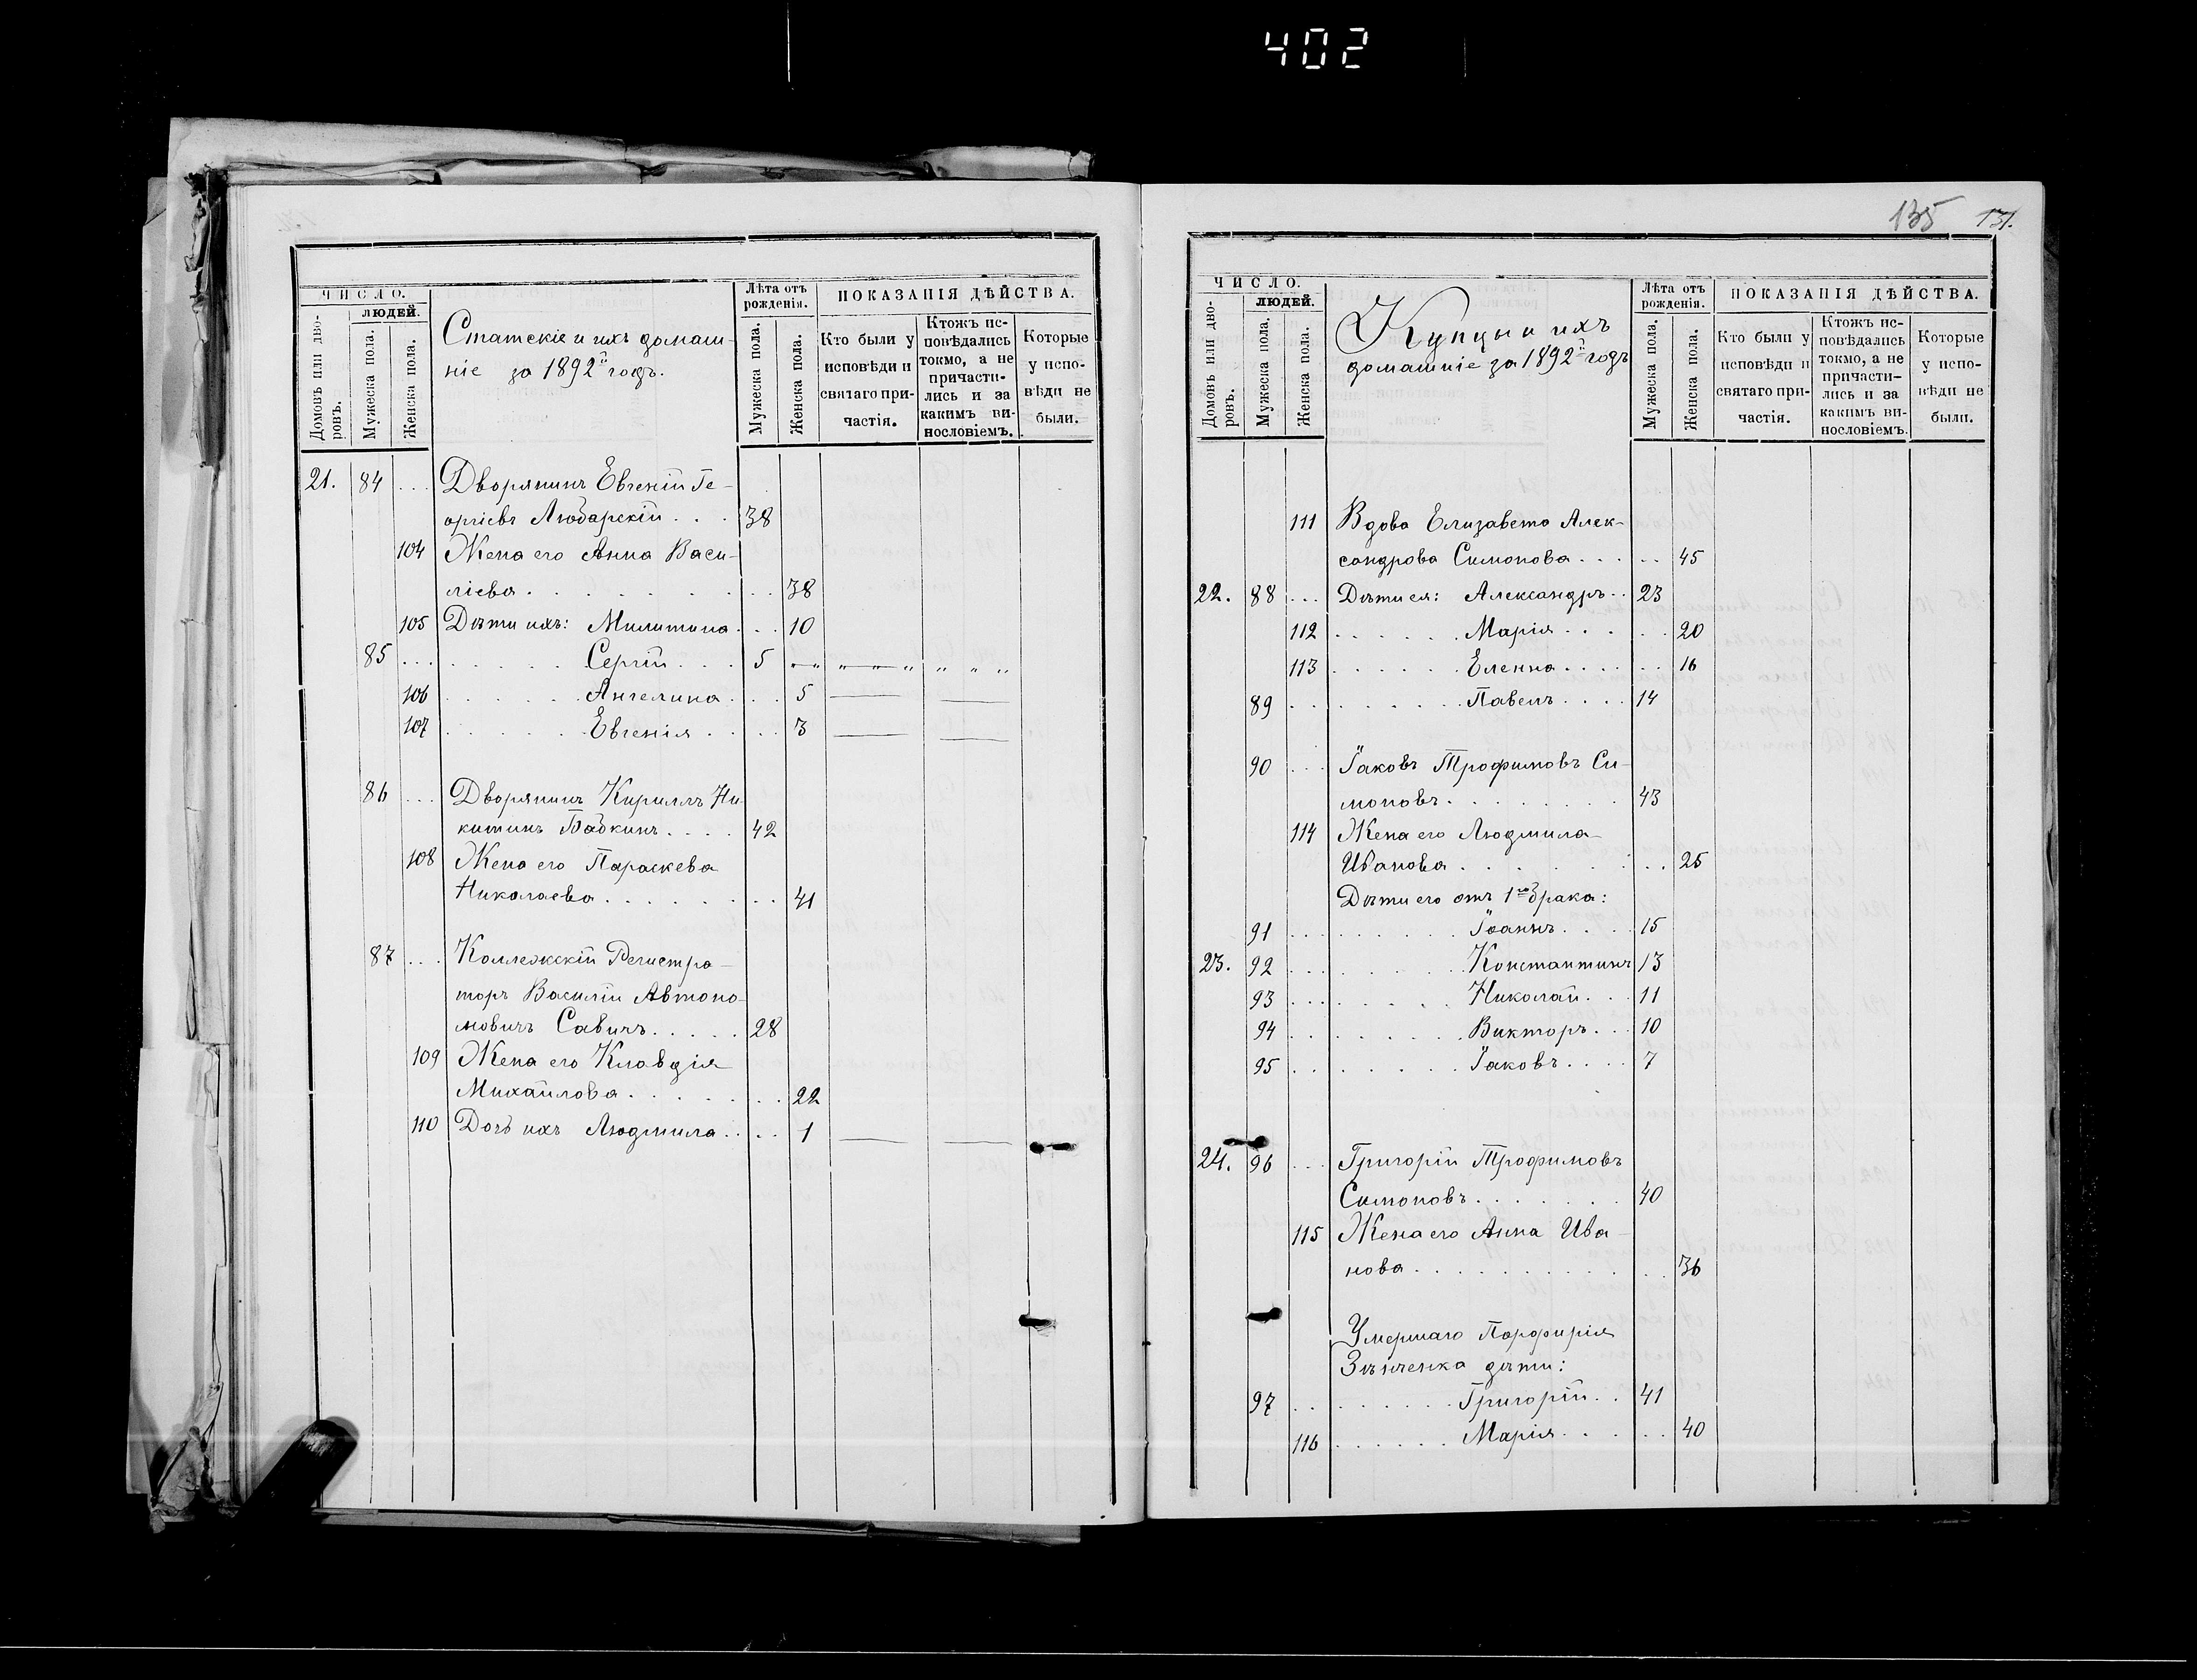 402
ЧИСЛО.
Домовъ или дво-
ровъ.
ЛЮДЕЙ.
Мужеска пола.
Женска пола.
Статскіе и ихъ домаш-
ніе за 1892й годъ.
Лѣта отъ
рожденія.
Мужеска пола.
Женска пола.
ПОКАЗАНІЯ ДѢЙСТВА.
Кто были у
исповѣди и
святаго при-
частія.
Ктожъ ис-
повѣдались
токмо, а не
причасти-
лись и за
какимъ ви-
нословіемъ.
Которые
у испо-
вѣди не
были.
21. 84 ... Дворянинъ Евгеній Ге-
оргіевъ Любарскій . . . 38
104 Жена его Анна Васи-
ліева . . . . . . . . 38
105 Дѣти ихъ: Милитина . . . 10
85 ... . . . . . Сергій . . . 5 „—„ „—„—„ „ „ „
106 . . . . . . Ангелина . . . 5 — —
107 . . . . . . Евгенія . . . . 3 — —
86 ... Дворянинъ Кириллъ Ни-
китинъ Бабкинъ . . . . 42
108 Жена его Параскева
Николаева . . . . . . . . 41
87 ... Коллежскій Регистра-
торъ Василій Автоно-
мовичъ Савичъ . . . . . 28
109 Жена его Клавдія
Михайлова . . . . . . . . 22
110 Дочь ихъ Людмила . . . . 1 — —
135 131.
ЧИСЛО.
Домовъ или дво-
ровъ.
ЛЮДЕЙ.
Мужеска пола.
Женска пола.
Купцы и ихъ
домашніе за 1892й годъ
Лѣта отъ
рожденія.
Мужеска пола.
Женска пола.
ПОКАЗАНІЯ ДѢЙСТВА.
Кто были у
исповѣди и
святаго при-
частія.
Ктожъ ис-
повѣдались
токмо, а не
причасти-
лись и за
какимъ ви-
нословіемъ.
Которые
у испо-
вѣди не
были.
111 Вдова Елизавета Алек-
сандрова Симонова . . . . . 45
22. 88 ... Дѣти ея: Александръ . . 23
112 . . . . . . Марія . . . . . 20
113 . . . . . . Еленна . . . . . . 16
89 . . . . . . . . . Павелъ . . . . 14
90 ... Іаковъ Трофимовъ Си-
моновъ . . . . . . . . 43
114 Жена его Людмила
Иванова . . . . . . . . 25
Дѣти его отъ 1го брака:
91 . . . . . . . . Іоаннъ . . . . 15
23. 92 . . . . . . . . Константинъ 13
93 . . . . . . . . Николай . . . 11
94 . . . . . . . . Викторъ . . . 10
95 . . . . . . . . Іаковъ . . . . 7
24. 96 ... Григорій Трофимовъ
Симоновъ . . . . . . . 40
115 Жена его Анна Ива-
нова . . . . . . . . . . . 36
Умершаго Порфирія
Зѣнченка дѣти:
97 . . . . . . . . Григорій . . 41
116 . . . . . . Марія . . . . . 40